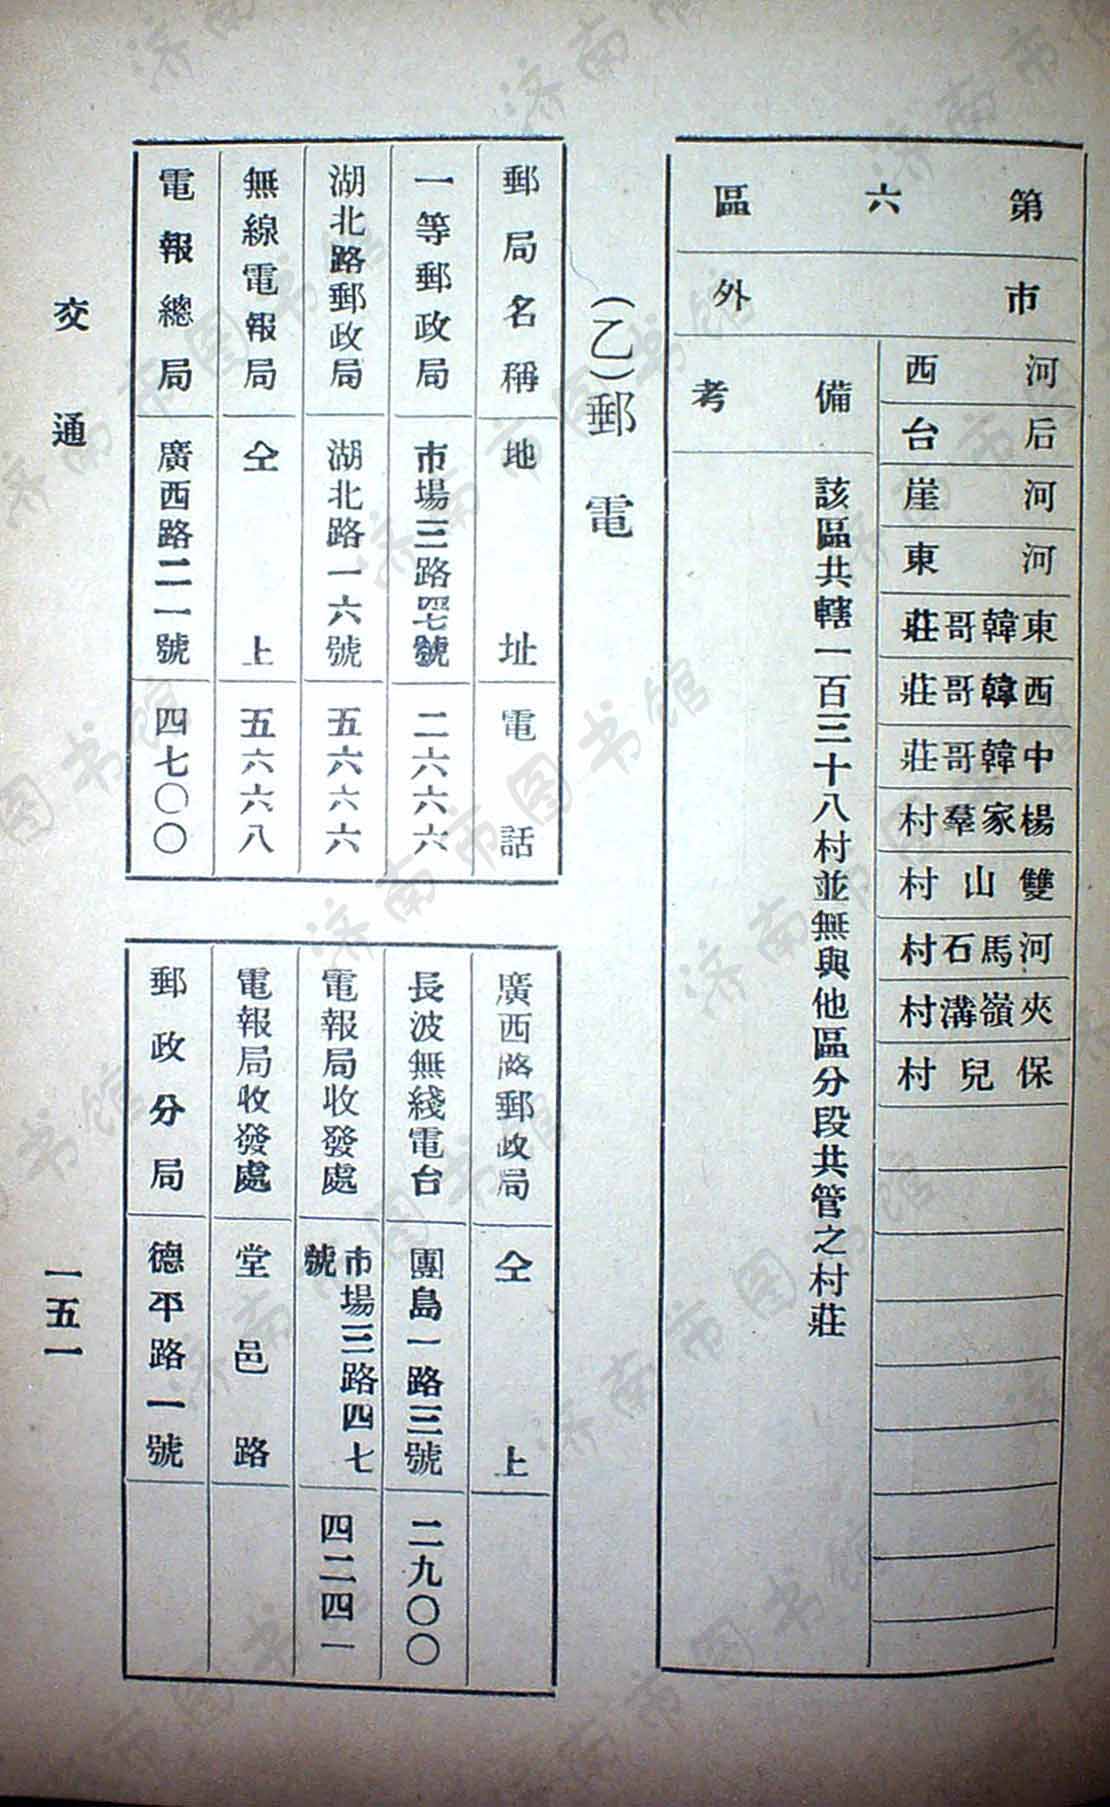 第六區
市外
河西
后台
河崖
河東
東韓哥莊
西韓哥莊
中韓哥莊
楊家羣村
雙山村
河馬石村
夾嶺溝村
保兒村
備考
該區共轄一百三十八村並無與他區分段共管之村莊
(乙)郵電
郵局名稱 地址 電話
一等郵政局 市場三路四七號 二六六六
湖北路郵政局 湖北路一六號 五六六六
無線電報局 仝上 五六六八
電報總局 廣西路二一號 四七〇〇
廣西路郵政局 仝上
長波無綫電台 團島一路三號 二九〇〇
電報局收發處 市場三路四七號 四二四一
電報局收發處 堂邑路
郵政分局 德平路一號
交通
一五一
济南市图书馆